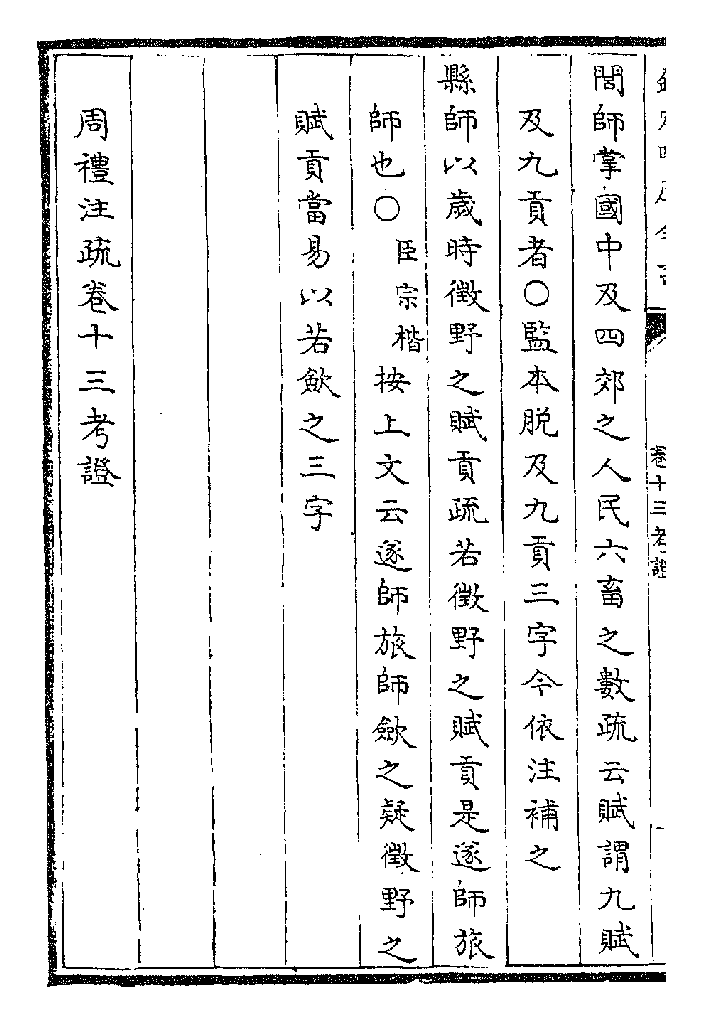 卷十三考證
閭師掌國中及四郊之人民六畜之數疏云賦謂九賦
及九貢者○監本脱及九貢三字今依注補之
縣師以歳時徴野之賦貢疏若徴野之賦貢是遂師旅
師也○臣宗楷按上文云遂師旅師斂之疑徴野之
賦貢當易以若斂之三字
周禮注疏卷十三考證